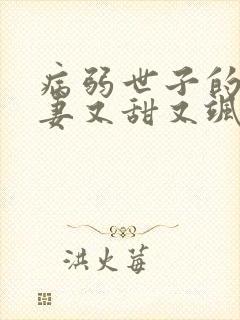 病弱世子的
妻又甜又飒
洪火莓